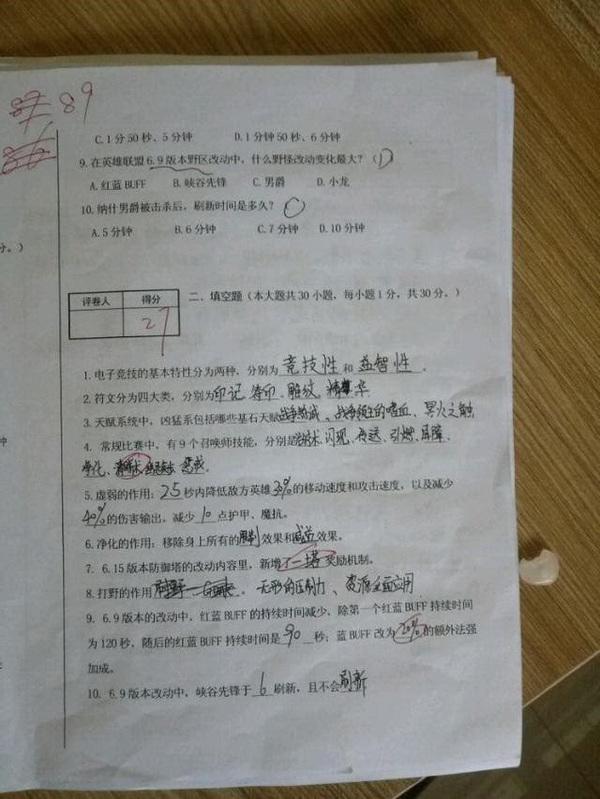 87 89
C.1分50秒、5分钟 D.1分钟50秒、6分钟
9.在英雄联盟6.9版本野区改动中，什么野怪改动变化最大？（D）
A.红蓝BUFF B.峡谷先锋 C.男爵 D.小龙
10.纳什男爵被击杀后，刷新时间是多久？
A.5分钟 B.6分钟 C.7分钟 D.10分钟
分。）
评卷人 得分
27
二、填空题（本大题共30小题，每小题1分，共30分。）
1.电子竞技的基本特性分为两种，分别为 竞技性 和 益智性 。
2.符文分为四大类，分别为印记、符印、雕纹、精华
3.天赋系统中，凶猛系包括哪些基石天赋战争热诚、战争领主的嗜血、冥火之触
4. 常规比赛中，有9个召唤师技能，分别是治疗术、闪现、传送、引燃、屏障、
钟
净化、 惩戒。
5.虚弱的作用：2.5秒内降低敌方英雄30%的移动速度和攻击速度，以及减少
40%的伤害输出，减少10点护甲、魔抗。
6.净化的作用：移除身上所有的限制效果和减益效果。
7. 6.15版本防御塔的改动内容里，新增了一塔奖励机制。
8.打野的作用 无形的压制力、资源全面应用
9. 6.9版本的改动中，红蓝BUFF的持续时间减少，除第一个红蓝BUFF持续时间
为120秒，随后的红蓝BUFF持续时间是 90 秒；蓝BUFF改为20%的额外法强
加成。
10. 6.9版本改动中，峡谷先锋于 6 刷新，且不会刷新